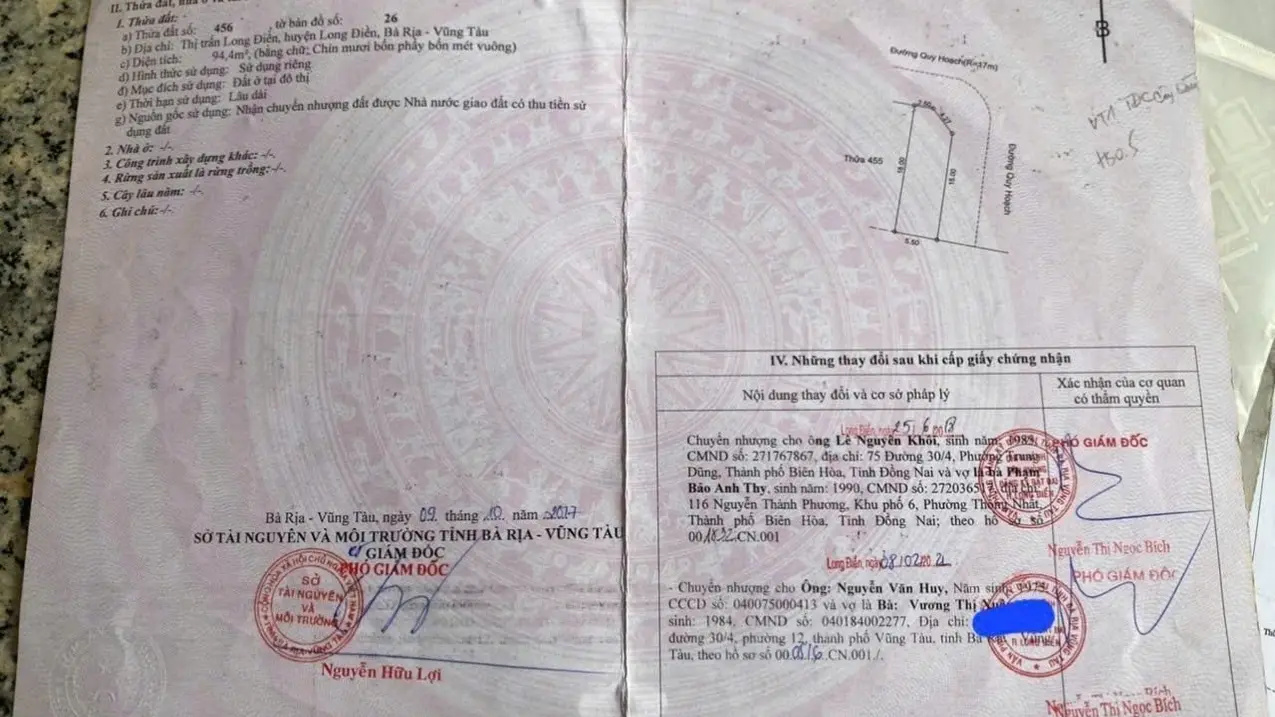 II. Thửa đất,
1. Thửa đất:
a) Thửa đất số: 456 , tờ bản đồ số: 26
b) Địa chỉ: Thị trấn Long Điền, huyện Long Điền, Bà Rịa - Vũng Tàu
c) Diện tích: 94,4m², (bằng chữ: Chín mươi bốn phẩy bốn mét vuông)
d) Hình thức sử dụng: Sử dụng riêng
đ) Mục đích sử dụng: Đất ở tại đô thị
e) Thời hạn sử dụng: Lâu dài
g) Nguồn gốc sử dụng: Nhận chuyển nhượng đất được Nhà nước giao đất có thu tiền sử
dụng đất
2. Nhà ở: -/-
3. Công trình xây dựng khác: -/-.
4. Rừng sản xuất là rừng trồng:-/-.
5. Cây lâu năm: -/-.
6. Ghi chú:-/-
Bà Rịa - Vũng Tàu, ngày 09 tháng 10 năm
SỞ TÀI NGUYÊN VÀ MÔI TRƯỜNG TỈNH BÀ RỊA - VŨNG TÀU
GIÁM ĐỐC
PHÓ GIÁM ĐỐC
SỞ
TÀI NGUYÊN
VÀ
MÔI TRƯỜNG
Nguyễn Hữu Lợi
B
Đường Quy Hoạch(R=17m)
Thửa 455
18.00
16.00
5.50
Đường Quy Hoạch
IV. Những thay đổi sau khi cấp giấy chứng nhận
Nội dung thay đổi và cơ sở pháp lý
Xác nhận của cơ quan
có thẩm quyền
Long Điền, ngày 25/6/2018
Chuyển nhượng cho ông Lê Nguyên Khôi, sinh năm
CMND số: 271767867, địa chỉ: 75 Đường 30/4, Phường Trung
Dũng, Thành phố Biên Hòa, Tỉnh Đồng Nai và vợ là bà Phạm
Bảo Anh Thy, sinh năm: 1990, CMND số: địa chỉ:
116 Nguyễn Thành Phương, Khu phố 6, Phường Thống Nhất,
Thành phố Biên Hòa, Tỉnh Đồng Nai; theo hồ sơ số
.CN.001
PHÓ GIÁM ĐỐC
Nguyễn Thị Ngọc Bích
Long Điền, ngày 08/02/20
- Chuyển nhượng cho Ông: Nguyễn Văn Huy, Năm sinh
CCCD số: 040075000413 và vợ là Bà: Vương Thị
sinh: 1984, CMND số: 040184002277, Địa chỉ:
đường 30/4, phường 12, thành phố Vũng Tàu, tỉnh Bà
Tàu, theo hồ sơ số .CN.001./.
PHÓ GIÁM ĐỐC
Nguyễn Thị Ngọc Bích